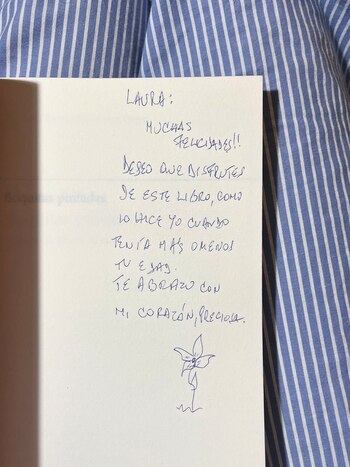 LAURA:
MUCHAS
FELICIDADES!!
DESEO QUE DISFRUTES
DE ESTE LIBRO, COMO
LO HICE YO CUANDO
TENÍA MÁS O MENOS
TU EDAD.
TE ABRAZO CON
MI CORAZÓN, PRECIOSA.